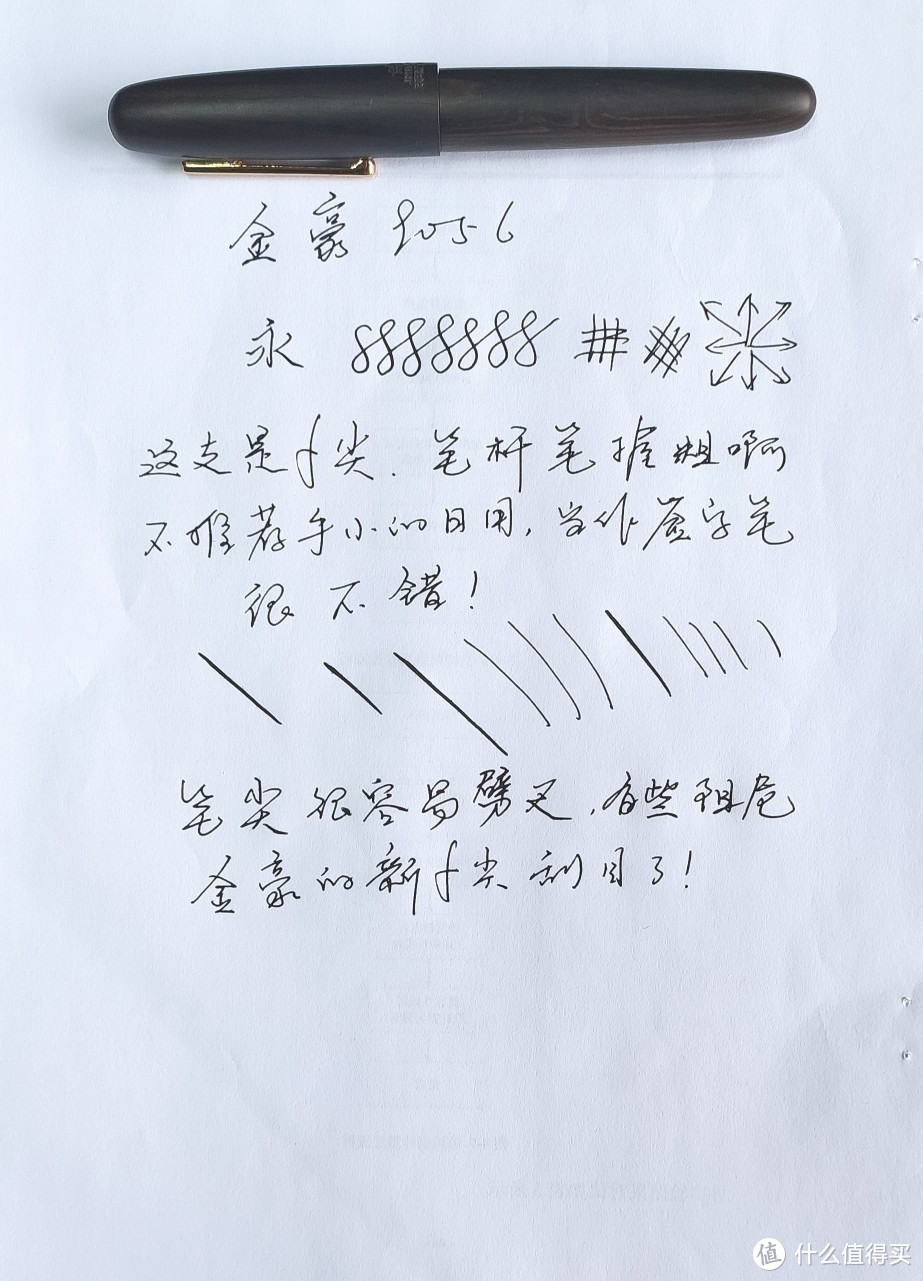 金豪 9056
永 8888888 #
这支是f尖. 笔杆笔握粗啊
不推荐手小的日用, 当作签字笔
很不错!
笔尖很容易劈叉, 有些阻尼
金豪的新f尖刮目了!
值 什么值得买